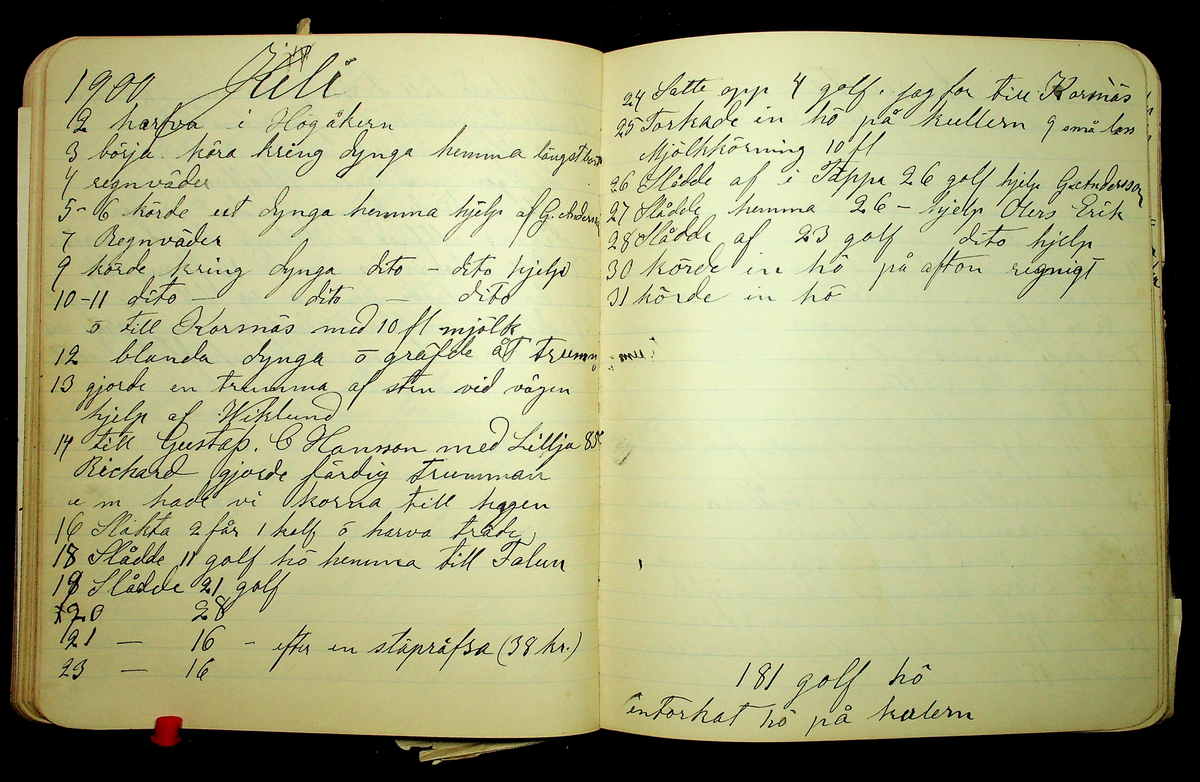 1900 Juli
12 harfva i Högåkern
3 börja köra kring dynga hemma längst bort
4 regnväder
5-6 körde ut dynga hemma hjelp af G. Anderss
7 Regnväder
9 körde kring dynga dito - dito hjelp
10-11 dito - dito - dito
o till Korsnäs med 10 fl mjölk
12 blanda dynga o gräfde åt trumm
13 gjorde en trumma af sten vid vägen
hjelp af Wiklund
14 till Gustaf. C Hansson med Lillja
Richard gjorde färdig trumman
e m hade vi korna till hagen
16 Slakta 2 får 1 kalf o harva träde
18 Slådde 11 golf hö hemma till Falun
19 Slådde 21 golf
20 28
21 — 16 - efter en släpräfsa (38 kr.)
23 — 16
24 Satte opp 4 golf. jag for till Korsnäs
25 Torkade in hö på kullern 9 små lass
Mjölkkörning 10 fl
26 Slådde af i Täppa 26 golf hjelp G. Andersson
27 Slådde hemma 26 - hjelp Olers Erik
28 Slådde af 23 golf dito hjelp
30 körde in hö på afton regnigt
31 körde in hö
181 golf hö
intorkat hö på kulern